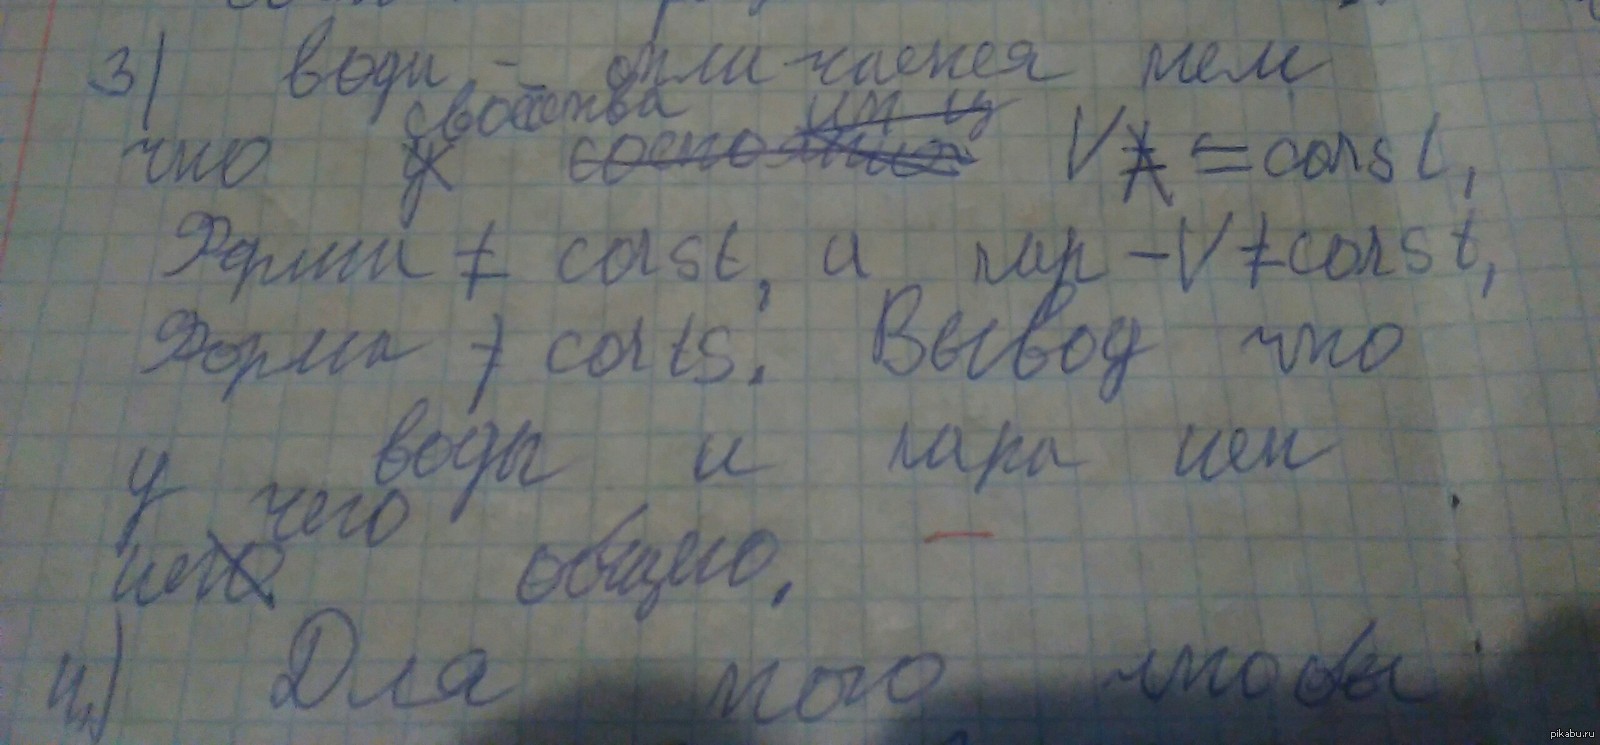 3) воды - отличается тем
что свойства V = const,
Формы ≠ const, а пар - V ≠ const,
Форма ≠ conts. Вывод что
у воды и пара нет
чего общего.
4) Для того чтобы
pikabu.ru